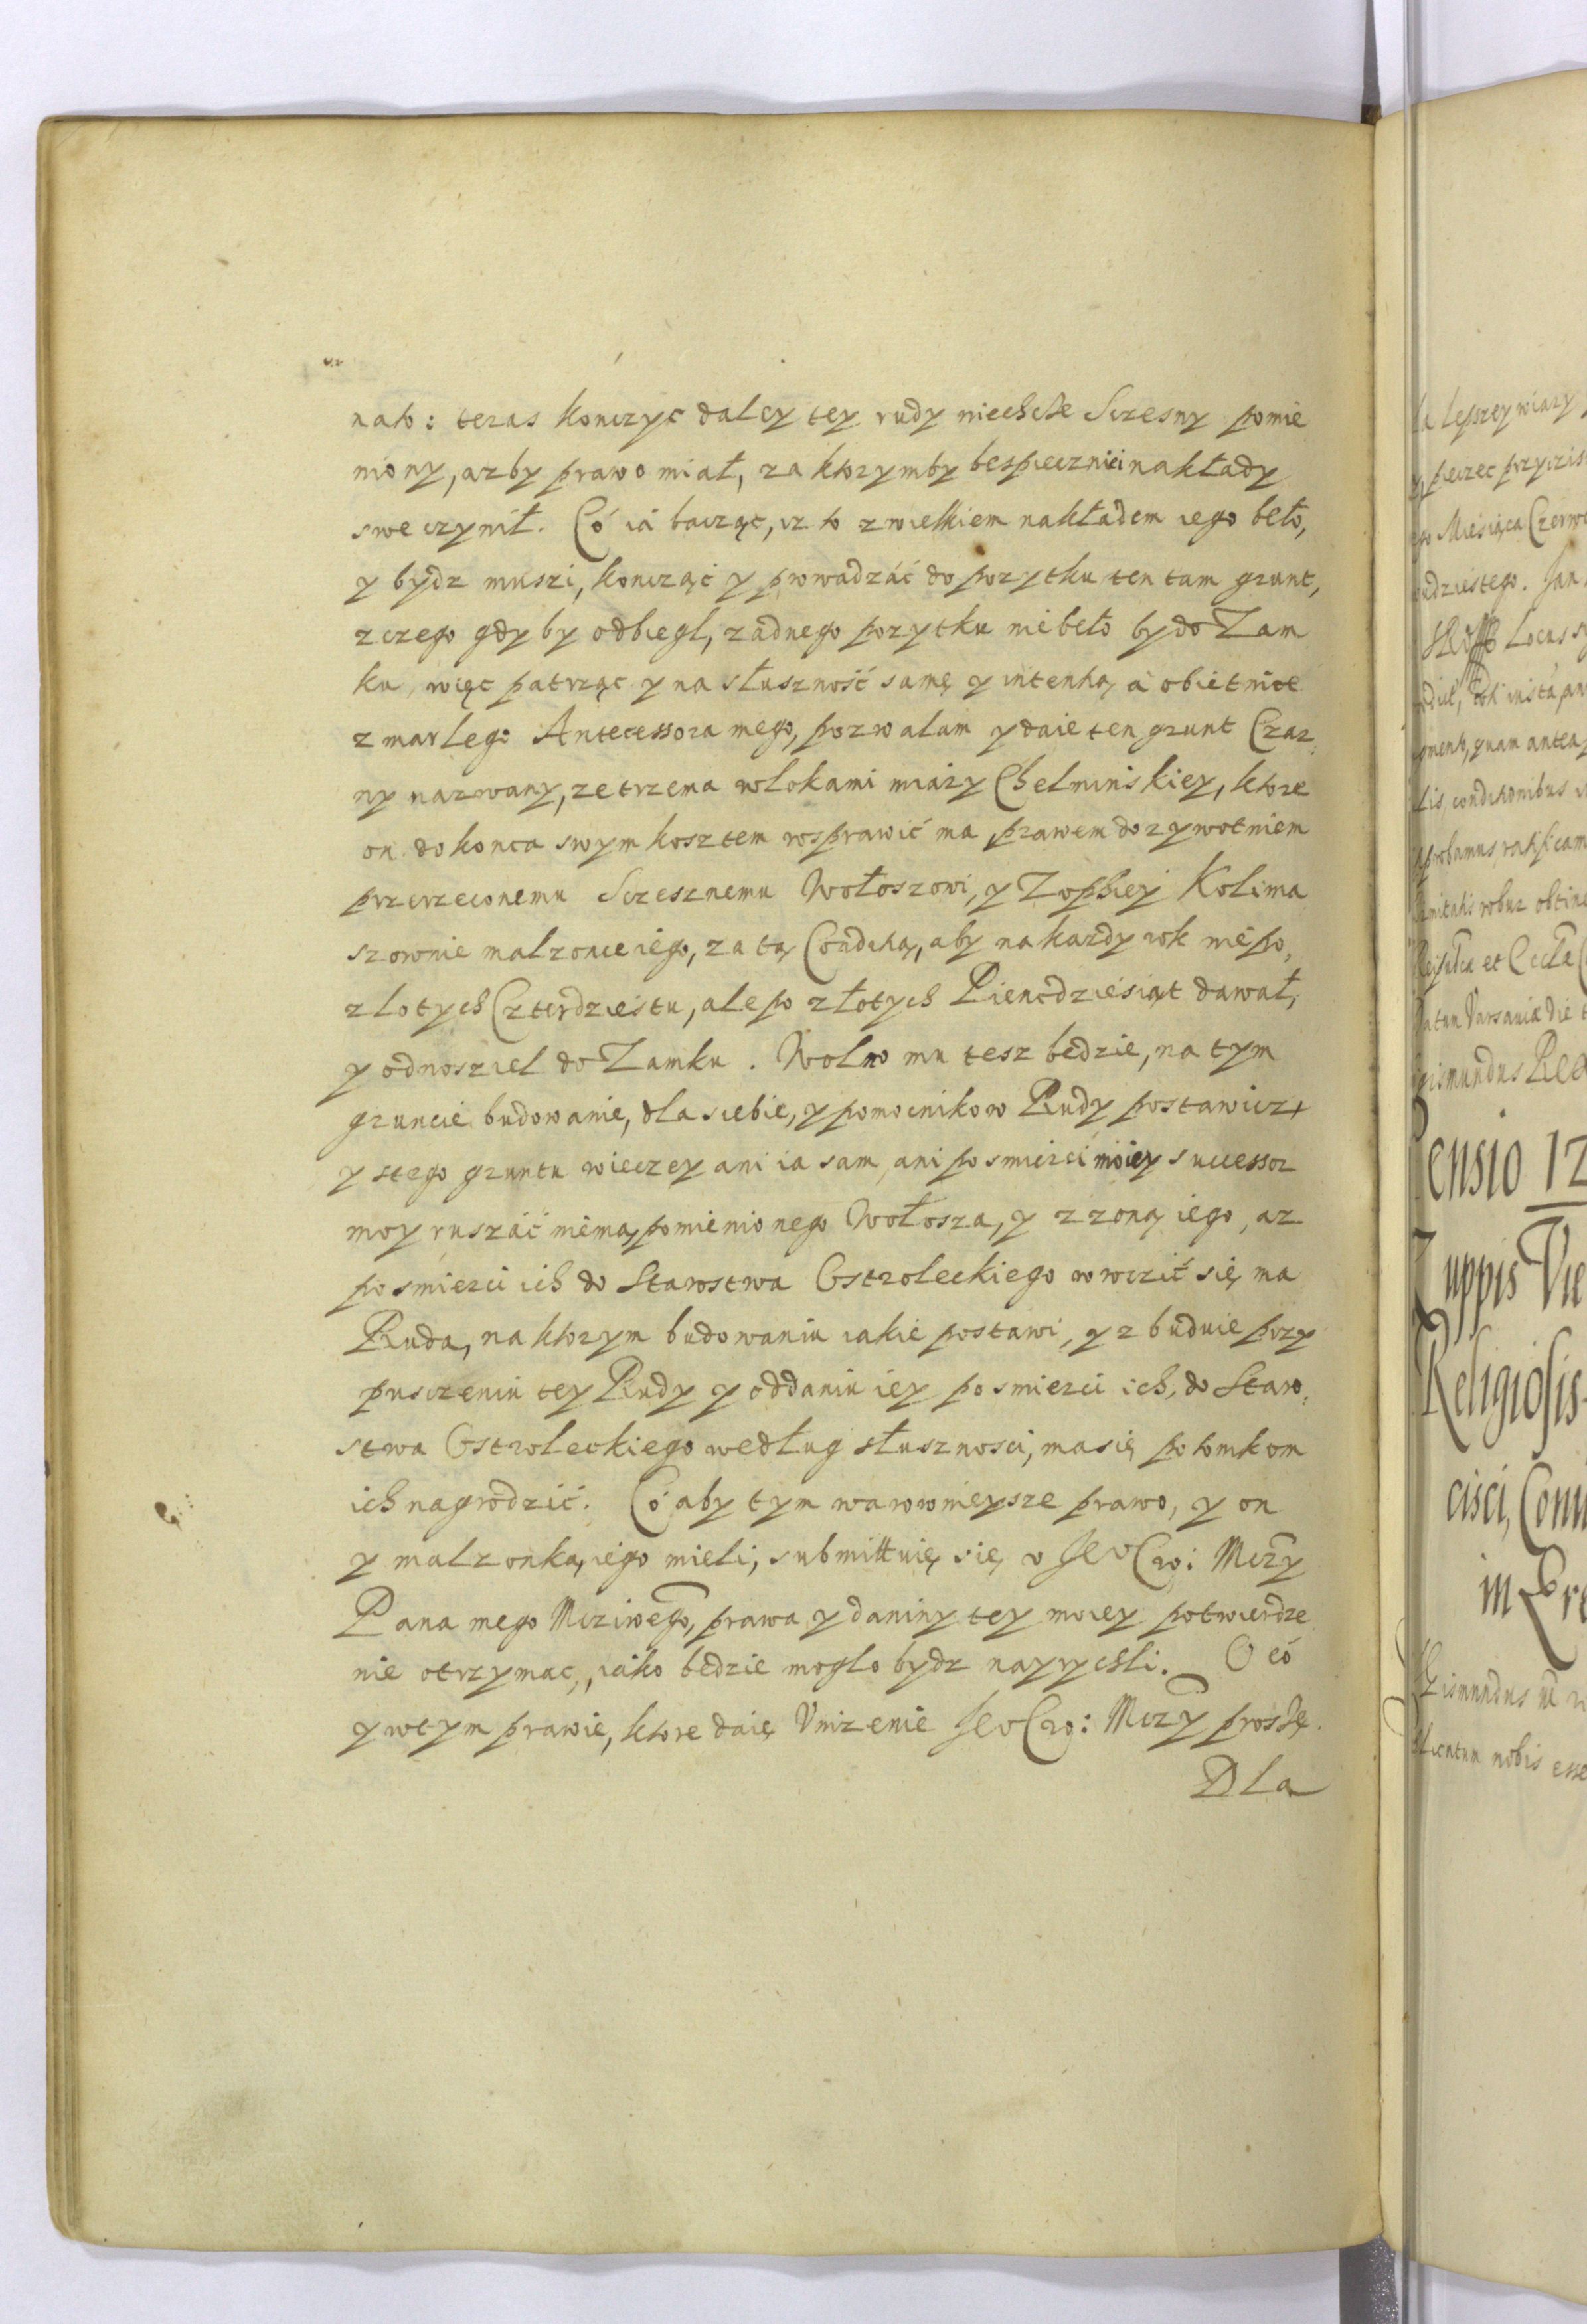 nato: teras konczyc daley tey rudy niechche Sczesny pomie
niony, azby prawo miał, za ktorymby bespiecznieinakłady
swe czynił. Có ia bacząc, iz to zwielkiem nakładem iego beło,
y bydz muszi, koncząć y prowadzáć do pozytku ten tam grunt,
zczego gdyby odbiegl, zadnego pozytku niebeło by do Zam
ku, więc patrząc y na słuszność samę y intentią, a obietnice
zmarlego Antecessora mego, pozwalam y daie ten grunt Czar,
ny nazwany, zetrzema wlokami miáry Chelminskiey, ktore
on do konca swym kosztem rosprawić ma prawem dozywotniem
przerzeczonemu Sczesznemu Wołoszowi, y Zophiey Kolima
szownie malzonceiego, za tą Conditią, aby na kazdy rok nie po,
zlotych Czterdziestu, ale po złotych Piencdziesiąt dawał,
y odnosziel do Zamku. Wolno mu tesz będzie, na tym
gruncie budowanie, dla siebie, y pomocnikow Rudy postawicz,
y stego gruntu wieczey ani ia sam, ani po smierci moiey successor
moy ruszáć niema, pomienionego Wołosza, y zzoną iego, az
po smierci ich do Starostwa Ostroleckiego wrocić się ma
Ruda, na ktorym budowaniu iakie postawi, y zbuduie przy
puszczeniu tey Rudy y oddaniu iey po smierci ich, do Staro,
stwa Ostroleckiego według słusznosci, masię potomkom
ich nagrodzić. Có aby tym warownieysze prawo, y on
y malzonka, iego mieli, submittuię się v Je° Kro: Mczy
Pana mego Mcziwego, prawa y daniny tey moiey potwierdze
nie otrzymac, iáko będzie moglo bydz nayrychli. O có
y wtym prawie, ktore daię Vnizenie Je° Kro: Mczy proshę.
Dla
la lepszey wiary
Miesiąca Czerwc
dziestego. Jan
Locus s
quam antea
conditionibus
probamus, ratificam
robur obtine
Datum Varsaviæ Die
gismundus Rex
Pensio 12
Zuppis Vie
Religiosis
cisci, Conu
in Cra
Sigismundus
nobis esse